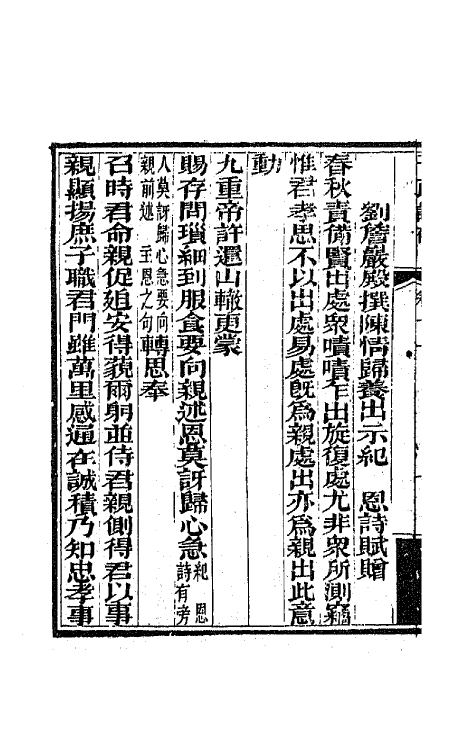 劉詹嚴殿撰陳情歸養出示紀　恩詩賦贈
春秋責備賢出處衆嘖嘖乍出旋復處尤非衆所測竊
惟君孝思不以出處易處旣爲親處出亦爲親出此意
動
九重帝許還山轍更蒙
賜存問瑣細到服食要向親述恩莫訝歸心急紀　恩詩有旁
人莫訝歸心急要向親前述　主恩之句轉思奉
召時君命親促廹安得藐爾躬並侍君親側得君以事
親顯揚庶子職君門雖萬里感通在誠積乃知忠孝事